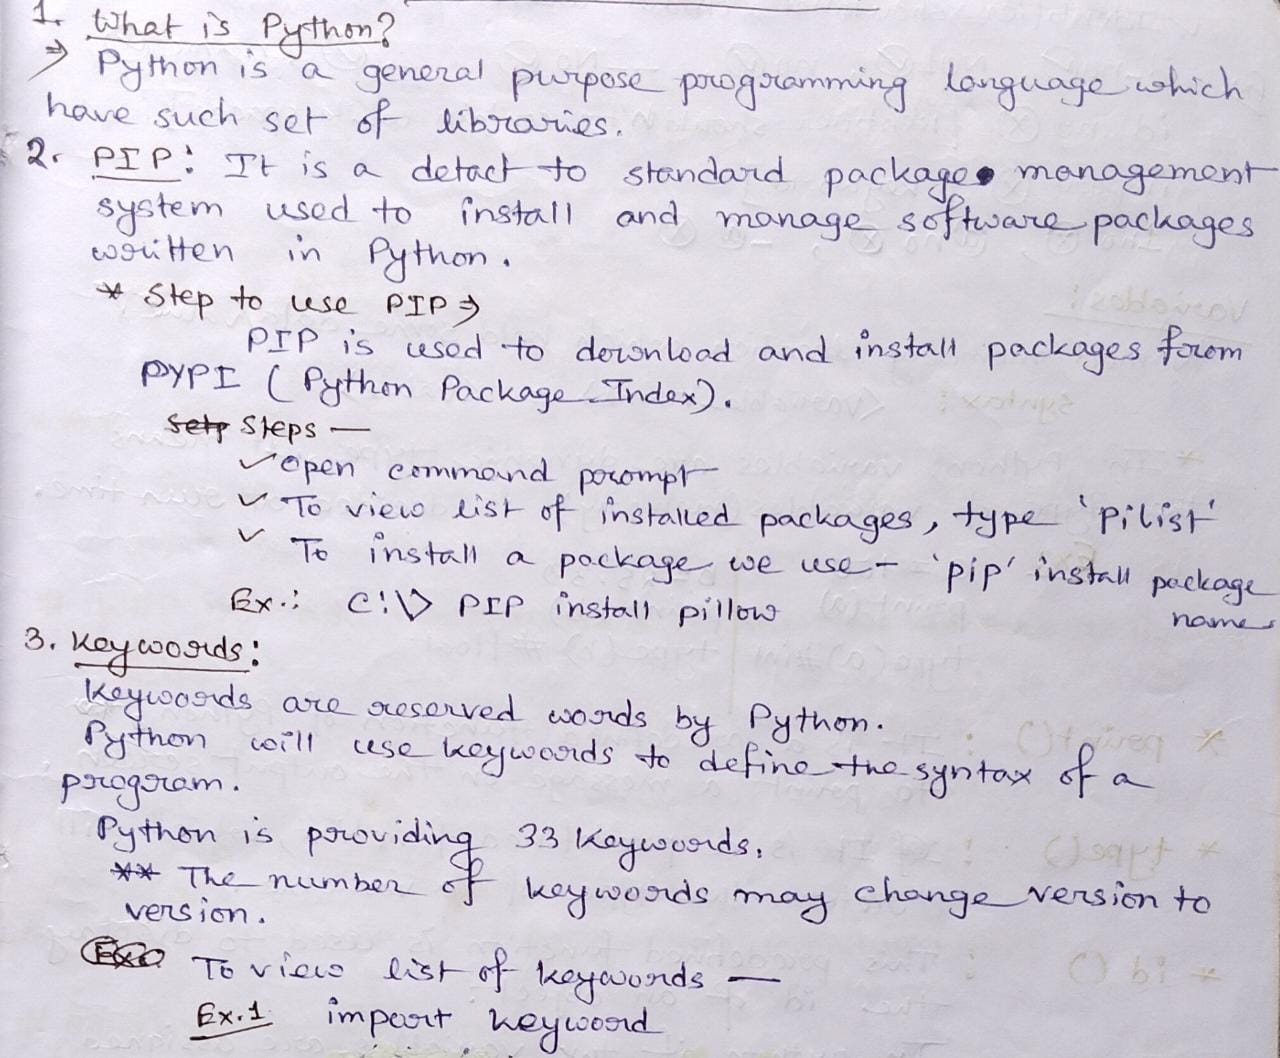 1. What is Python?
⇒ Python is a general purpose programming language which
have such set of libraries.
2. PIP: It is a detact to standard package management
system used to install and manage software packages
written in Python.
* Step to use PIP ⇒
PIP is used to download and install packages from
PYPI (Python Package Index).
Setp Steps —
✓ Open command prompt
✓ To view list of installed packages, type 'pilist'
✓ To install a package we use - 'pip' install package
name
Ex.: C:\> PIP install pillow
3. Keywords:
Keywords are reserved words by Python.
Python will use keywords to define the syntax of a
program.
Python is providing 33 keywords.
** The number of keywords may change version to
version.
To view list of keywords —
Ex.1 import keyword